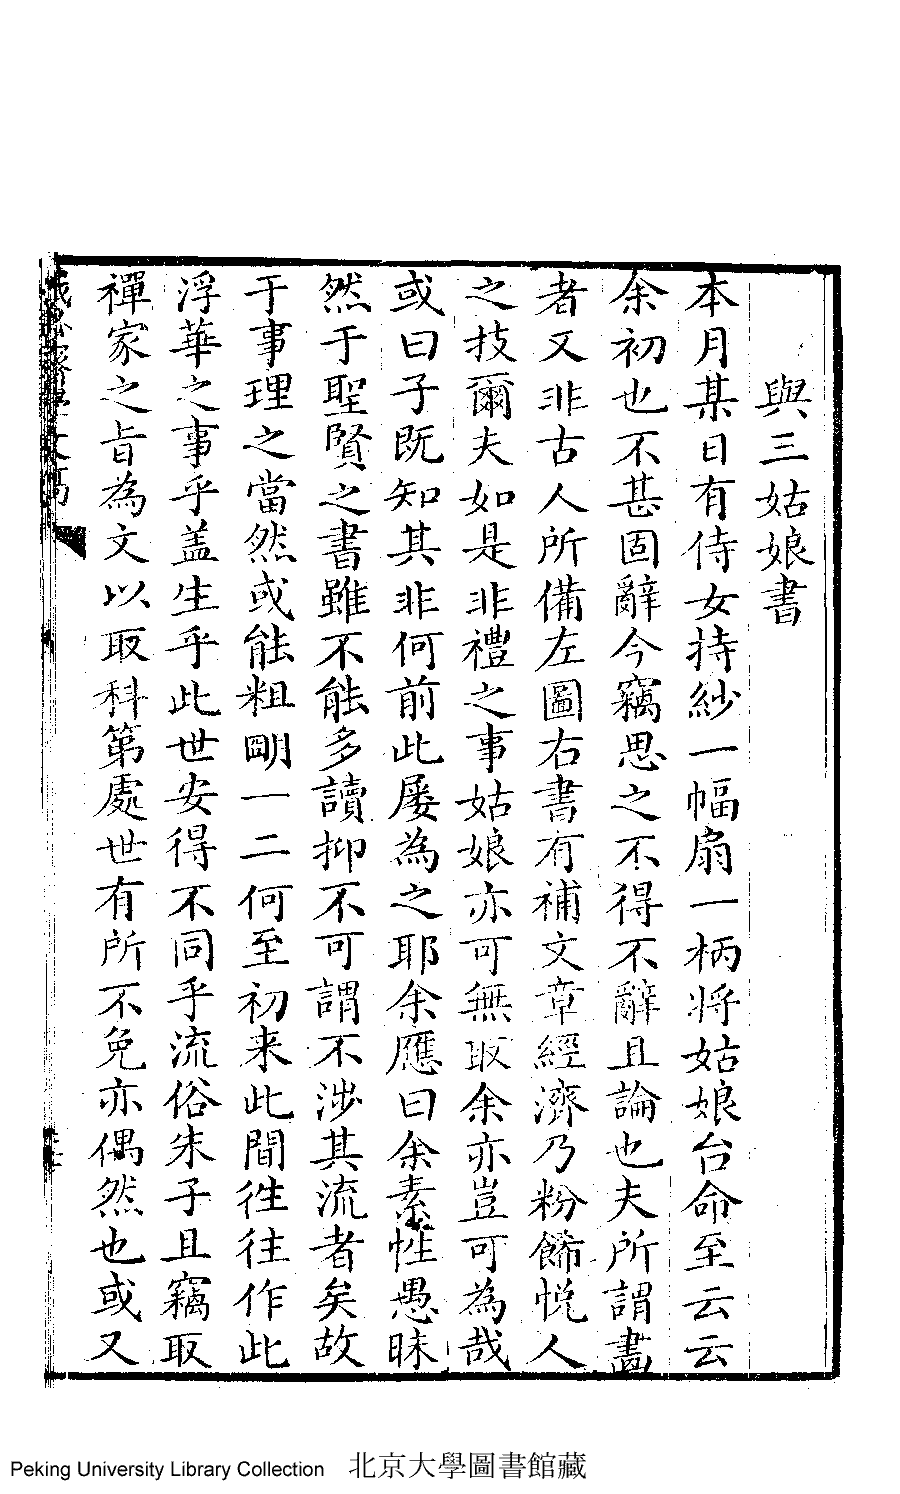 與三姑娘書
本月某日有侍女持紗一幅扇一柄将姑娘台命至云云
余初也不甚固辭今竊思之不得不辭且論也夫所謂畵
者又非古人所備左圖右書有補文章經濟乃粉餙悦人
之技爾夫如是非禮之事姑娘亦可無取余亦豈可為哉
或曰子既知其非何前此屡為之耶余應曰余素性愚昧
然于聖賢之書雖不能多讀抑不可謂不涉其流者矣故
于事理之當然或能粗朙一二何至初来此間徃往作此
浮華之事乎盖生乎此世安得不同乎流俗朱子且竊取
禪家之旨為文以取科第處世有所不免亦偶然也或又
Peking University Library Collection 北京大學圖書館藏